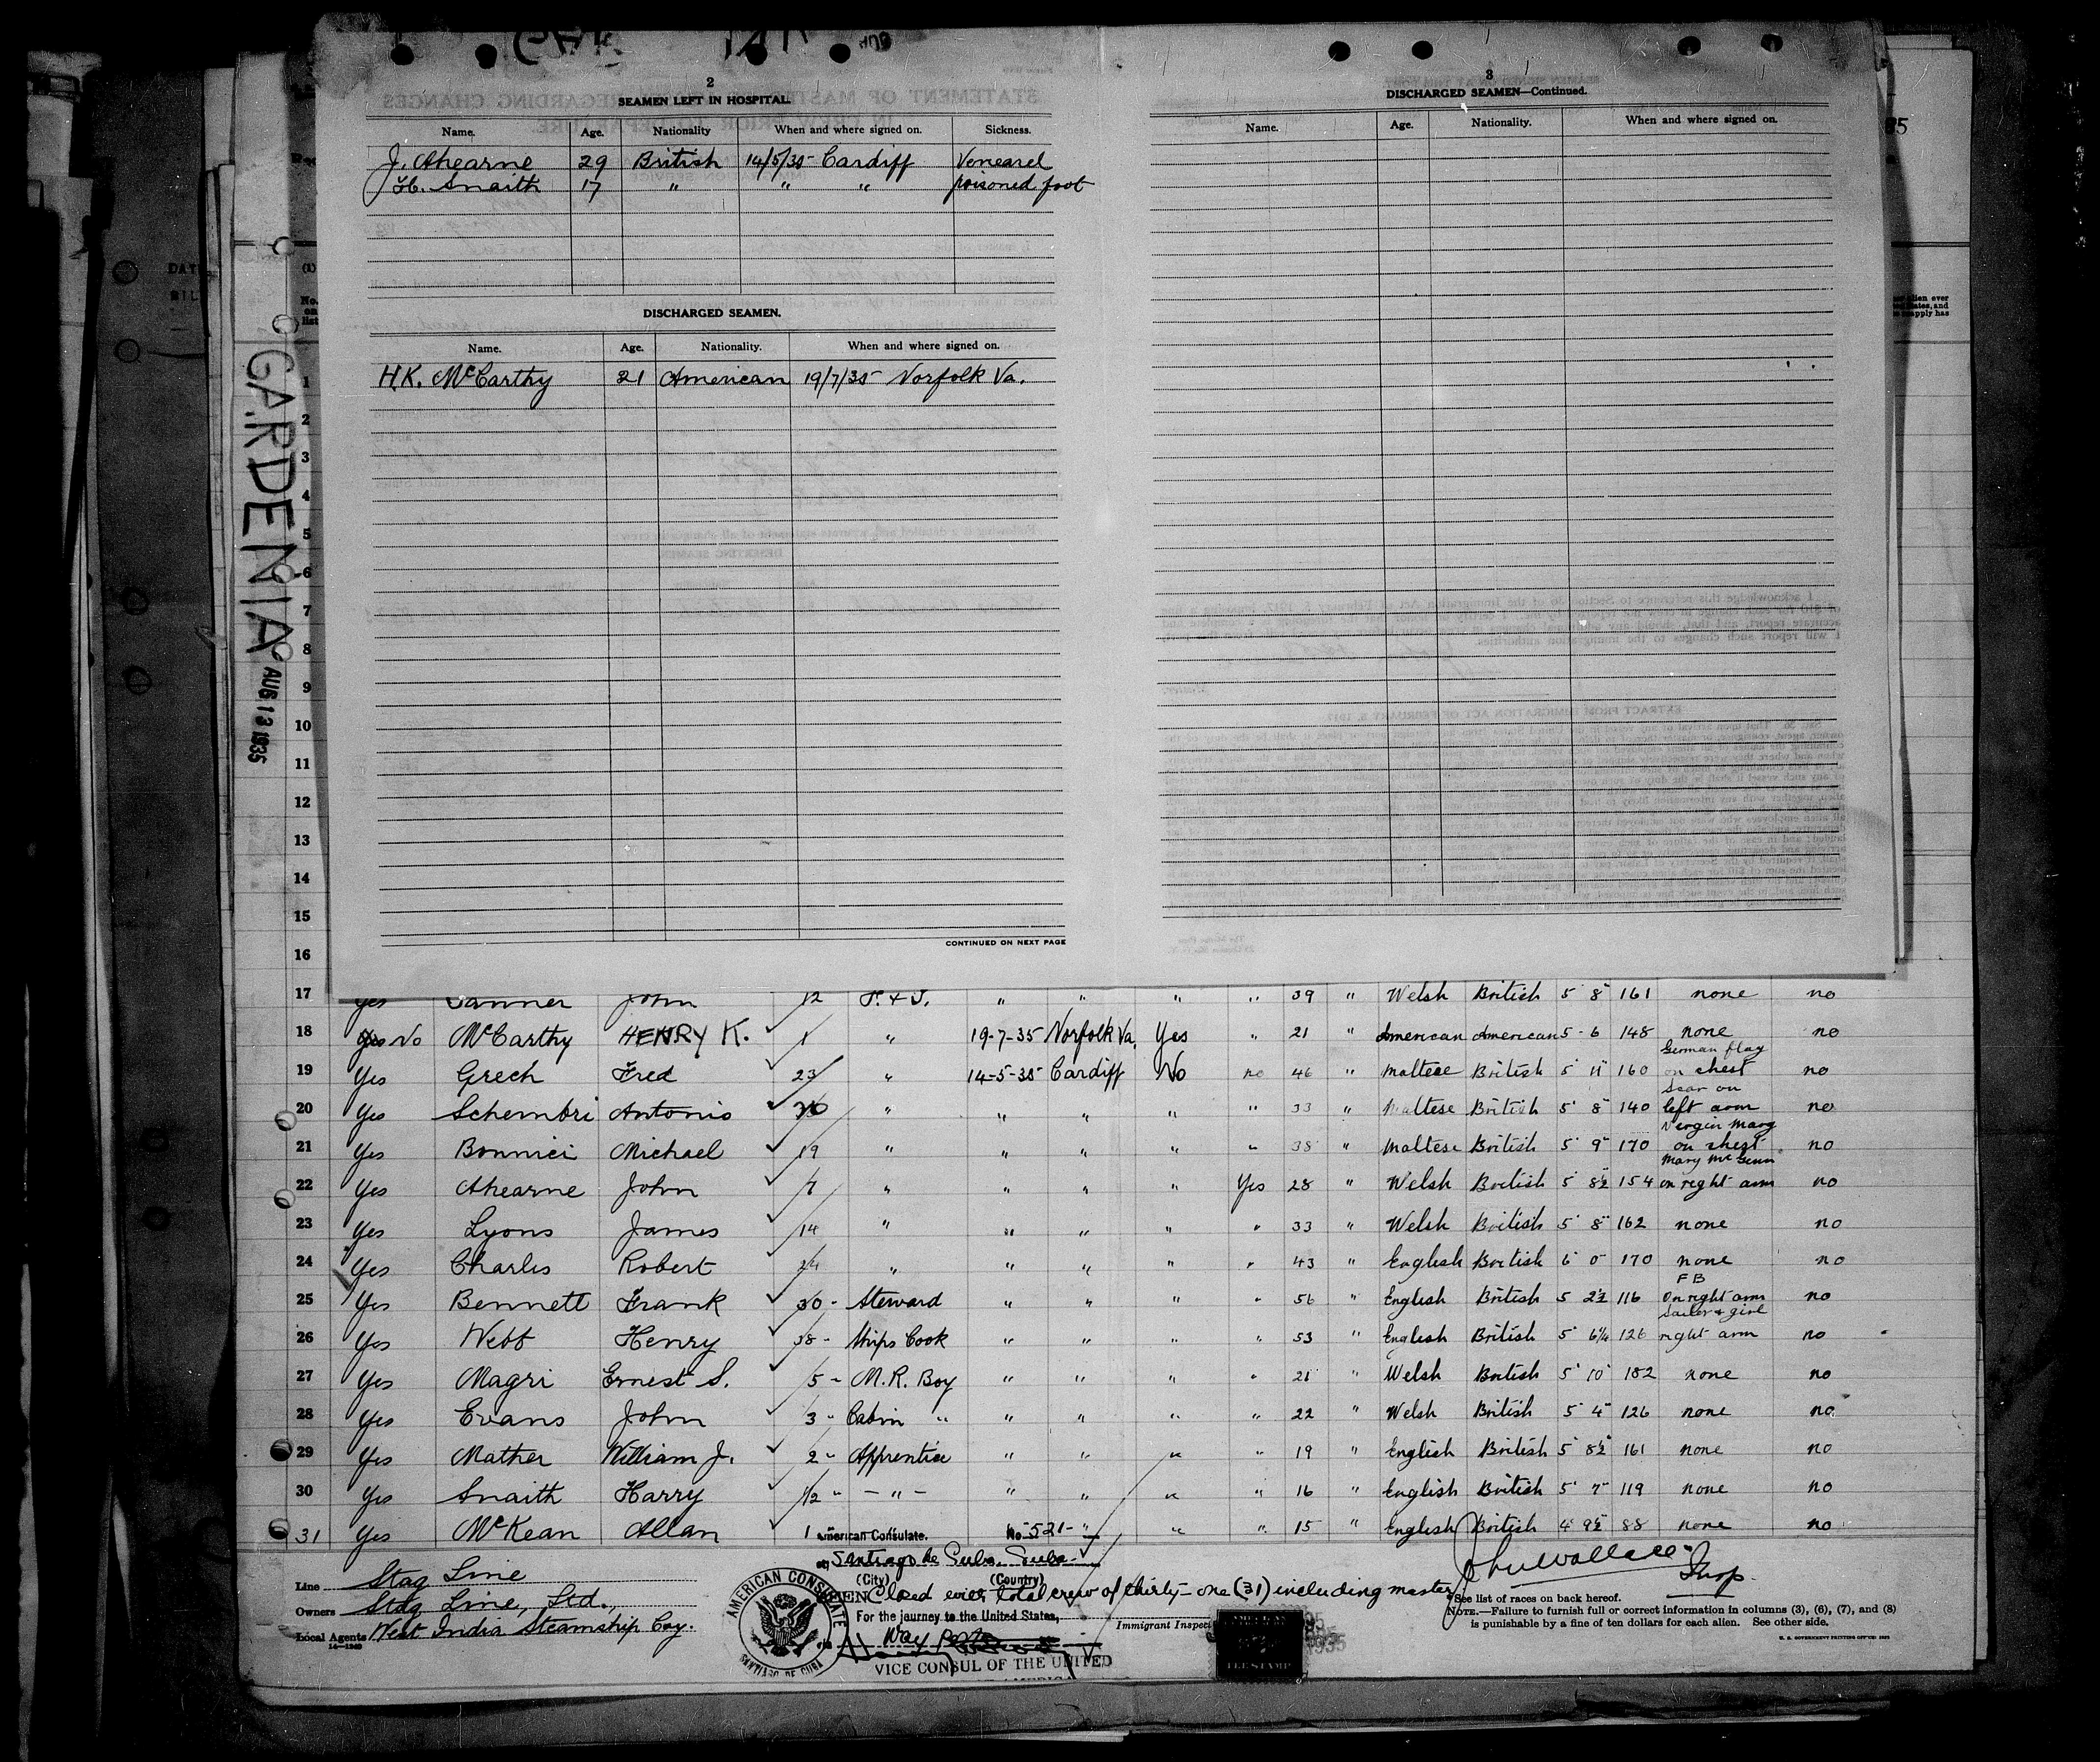 2
SEAMEN LEFT IN HOSPITAL.
Name. Age. Nationality When and where signed on. Sickness.
J. Ahearne 29 British 14/5/35 - Cardiff Venearel
H. Snaith 17 " " " poisoned foot
DISCHARGED SEAMEN.
Name. Age. Nationality. When and where signed on.
H.K. McCarthy 21 American 19/7/35 Norfolk Va.
CONTINUED ON NEXT PAGE
3
DISCHARGED SEAMEN—Continued.
Name. Age. Nationality. When and where signed on.
GARDENIA
AUG 13 1935
(1)
No. on list
1
2
3
4
5
6
7
8
9
10
11
12
13
14
15
16
17 Yes John 12 " " " " 39 " Welsh British 5 8 161 none no
18 Yes No McCarthy HENRY K. 1 " 19-7-35 Norfolk Va. Yes " 21 " American American 5 - 6 148 none no
19 Yes Grech Fred 23 " 14-5-35 Cardiff No no 46 " Maltese British 5 11 160 German flag on chest no
20 Yes Schembri Antonio " " " " " 33 " Maltese British 5 8 140 Scar on left arm no
21 Yes Bonnici Michael 19 " " " " " 38 " Maltese British 5 9 170 Vergin Mary on chest no
22 Yes Ahearne John " " " " Yes 28 " Welsh British 5 8½ 154 on right arm no
23 Yes Lyons James 14 " " " " " 33 " Welsh British 5 8 162 none no
24 Yes Charles Robert 24 " " " " " 43 " English British 6 0 170 none no
25 Yes Bennett Frank 30 - Steward " " " " 56 " English British 5 2½ 116 FB On right arm no
26 Yes Webb Henry 38 - Ships Cook " " " " 53 " English British 5 6¼ 126 Sailor & girl right arm no
27 Yes Magri Ernest S. 5 - M.R. Boy " " " " 21 " Welsh British 5 10 182 none no
28 Yes Evans John 3 - Cabin " " " " " 22 " Welsh British 5 4 126 none no
29 Yes Mather William J. 2 - Apprentice " " " " 19 " English British 5 8½ 161 none no
30 Yes Snaith Harry 1/2 " - " - " " " " 16 " English British 5 7 119 none no
31 Yes McKean Allan 1 " " " " 15 " English British 4 9½ 88 none no
American Consulate. No 521-
at Santiago de Cuba, Cuba
(City) (Country)
SEEN Closed with total crew of thirty-one (31) including master
For the journey to the United States,
VICE CONSUL OF THE UNITED
AMERICAN CONSULATE
SANTIAGO DE CUBA
Line Stag Line
Owners Stag Line, Ltd.,
Local Agents West India Steamship Coy.
Immigrant Inspect
John Wallace
Insp.
See list of races on back hereof.
NOTE.—Failure to furnish full or correct information in columns (3), (6), (7), and (8)
is punishable by a fine of ten dollars for each alien. See other side.